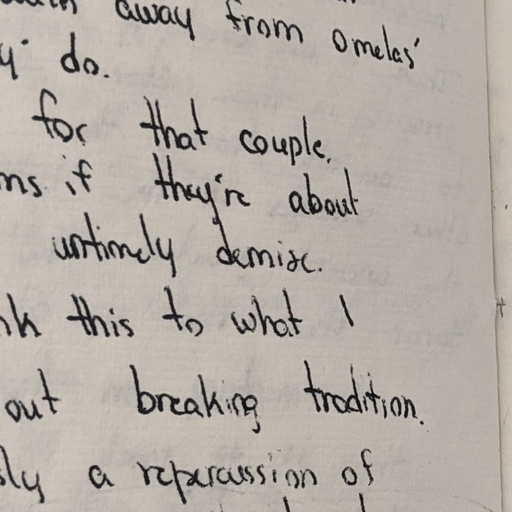 away from omelas'
do.
for that couple.
if they're about
untimely demise.
this to what I
out breaking tradition.
a repercussion of